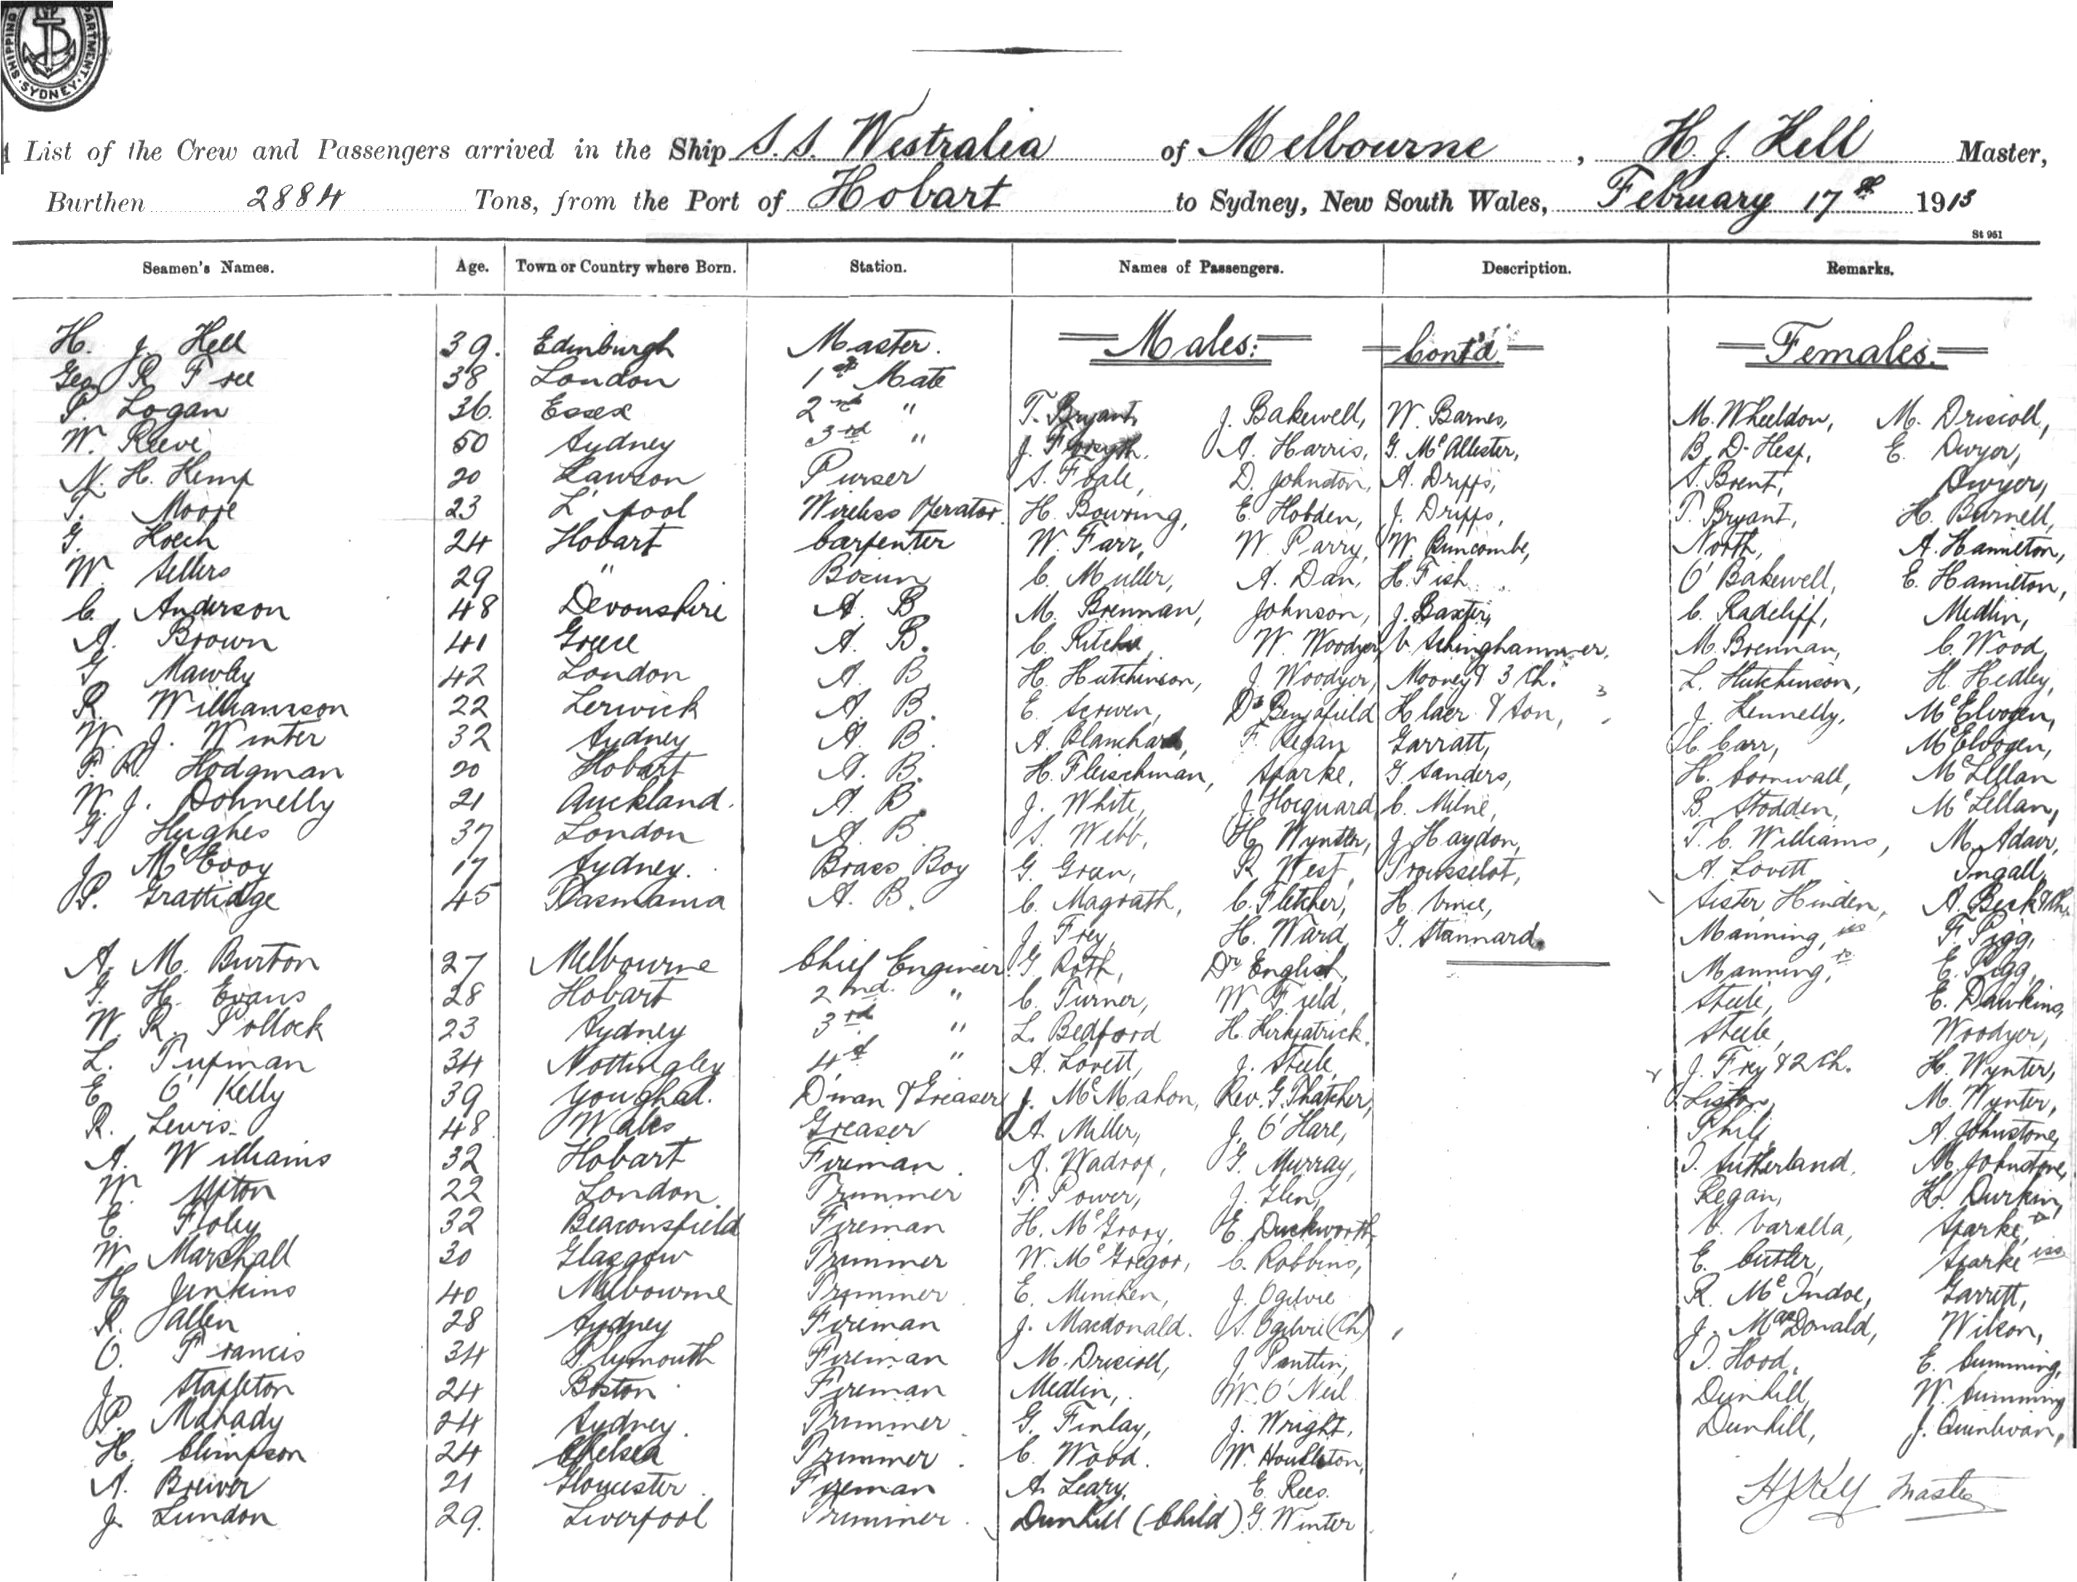 SHIPPING DEPARTMENT. SYDNEY.
List of the Crew and Passengers arrived in the Ship S.S. Westralia of Melbourne, H J. Kell Master,
Burthen 2884 Tons, from the Port of Hobart to Sydney, New South Wales, February 17th 1913
St 951
Seamen's Names. Age. Town or Country where Born. Station. Names of Passengers. Description. Remarks.
Males: Cont'd Females.
H. J Kell 39. Edinburgh Master.
Geo R Free 38 London 1st Mate
P. Logan 36. Essex 2nd " T. Bryant, J. Bakewell, W. Barnes, M. Wheeldon, M. Driscoll,
W. Reeve 50 Sydney 3rd " J. Forsyth. A. Harris, G. McAllister, B. D. Hesp, E. Dwyer,
N. H. Kemp 20 Lawson Purser S. Foale, D. Johnston, A. Dripps, S. Brent, Dwyer,
T. Moore 23 L'pool Wireless Operator. H. Bowring, E. Hobden, J. Dripps, T. Bryant, H. Burnell,
G. Koech 24 Hobart Carpenter W. Farr, W. Parry, W. Buncombe, North, A. Hamilton,
W. Sellers 29 " Bosun C. Muller, A. Dan, H. Fish O' Bakewell, E. Hamilton,
C. Anderson 48 Devonshire A. B M. Brennan, Johnson, J. Baxter, C. Radcliff, Medlin,
A. Brown 41 Greece A. B. C. Ritchie W. Woodyer, V. Schinghammer. M. Brennan, C. Wood,
G Mawley 42 London A. B H. Hutchinson, J. Woodyer, Mooney & 3 Ch. L. Hutchinson, H. Hedley,
R. Williamson 22 Lerwick A. B. E. Scowen, Dr Benjafield Klaer & Son, J. Kennelly, McElvogen,
W. J. Winter 32 Sydney A. B. A. Blanchard, F. Regan Garratt, C. Carr, McElvogen,
F. R. Hodgman 20 Hobart A. B. H. Fleischman, Sparke, G. Sanders, H. Cornwall, McLellan
W. J. Donnelly 21 Auckland. A. B. J. White, J. Hocquard, C. Milne, B. Stodden, McLellan,
G Hughes 37 London A. B S. Webb, H Wynter, J. Haydon, T. C. Williams, M. Adair,
J. McEvoy 17 Sydney. Brass Boy G. Gran, R West, Trousselot, A. Lovett Ingall,
P. Grattidge 45 Tasmania A. B. C. Magrath, C. Fletcher, H. Vince, Sister Hinden, A. Beck & Ch,
J. Frey, H. Ward G. Stannard. Manning, iss F Pigg,
A. M. Burton 27 Melbourne Chief Engineer G. Roth, Dr English, Manning, rs E. Pigg,
G. H. Evans 28 Hobart 2nd. " C. Turner, W. Field, Steele, E. Dawkins,
W. R. Pollock 23 Sydney 3rd " L. Bedford H. Kirkpatrick. Steele, Woodyer,
L. Tupman 34 Nottingley 4th " A. Lovett, J. Steele, J. Frey & 2 Ch. H. Wynter,
E O' Kelly 39 Youghal. D'man & Greaser J. McMahon, Rev. G. Thatcher, Liston, M. Wynter,
R. Lewis. 48 Wales Greaser A. Miller, J. O'Hare, Philp A. Johnstone,
A. Williams 32 Hobart Fireman. A. Wadrop, G. Murray, I. Sutherland, M. Johnstone,
W. Upton 22 London Trimmer T. Power, J. Glen, Regan, H. Durkin,
E. Foley 32 Beaconsfield Fireman H. McGrory, E. Duckworth, V. Varalla, Sparke, rs
W Marshall 30 Glasgow Trimmer W. McGregor, C. Robbins, E. Cutler, Sparke iss
H. Jenkins 40 Melbourne Trimmer E. Minchen, J. Ogilvie R. McIndoe, Garrett,
R. Allen 28 Sydney Fireman J. Macdonald. S. Ogilvie (Ch) J. MacDonald, Wilson,
O. Francis 34 Plymouth Fireman M. Driscoll, J Panttin, I. Hood, E. Cumming,
J Stapleton 24 Boston Fireman Medlin, W. O'Neil Dunhill, W. Cumming
P. Mahady 24 Sydney. Trimmer G. Finlay, J. Wright, Dunhill, J. Quinlivan,
H. Climpson 24 Chelsea Trimmer. C. Wood. W. Houlston,
A. Brewer 21 Gloucester. Fireman A. Leary, E. Rees. HJKell Master
J. Lundon 29. Liverpool Trimmer. Dunhill (Child). G. Winter